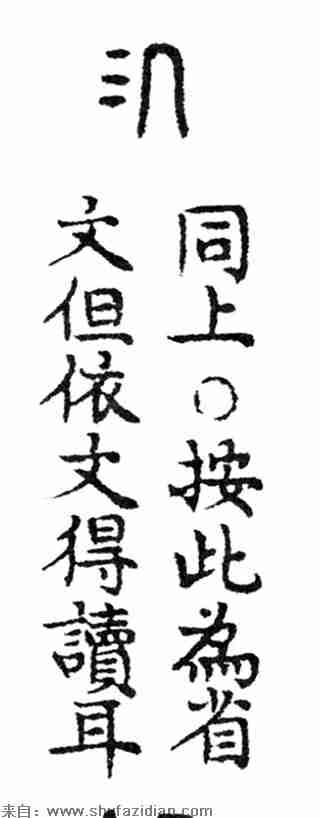 同上○按此為省
文但依文得讀耳
来自：www.shufazidian.com